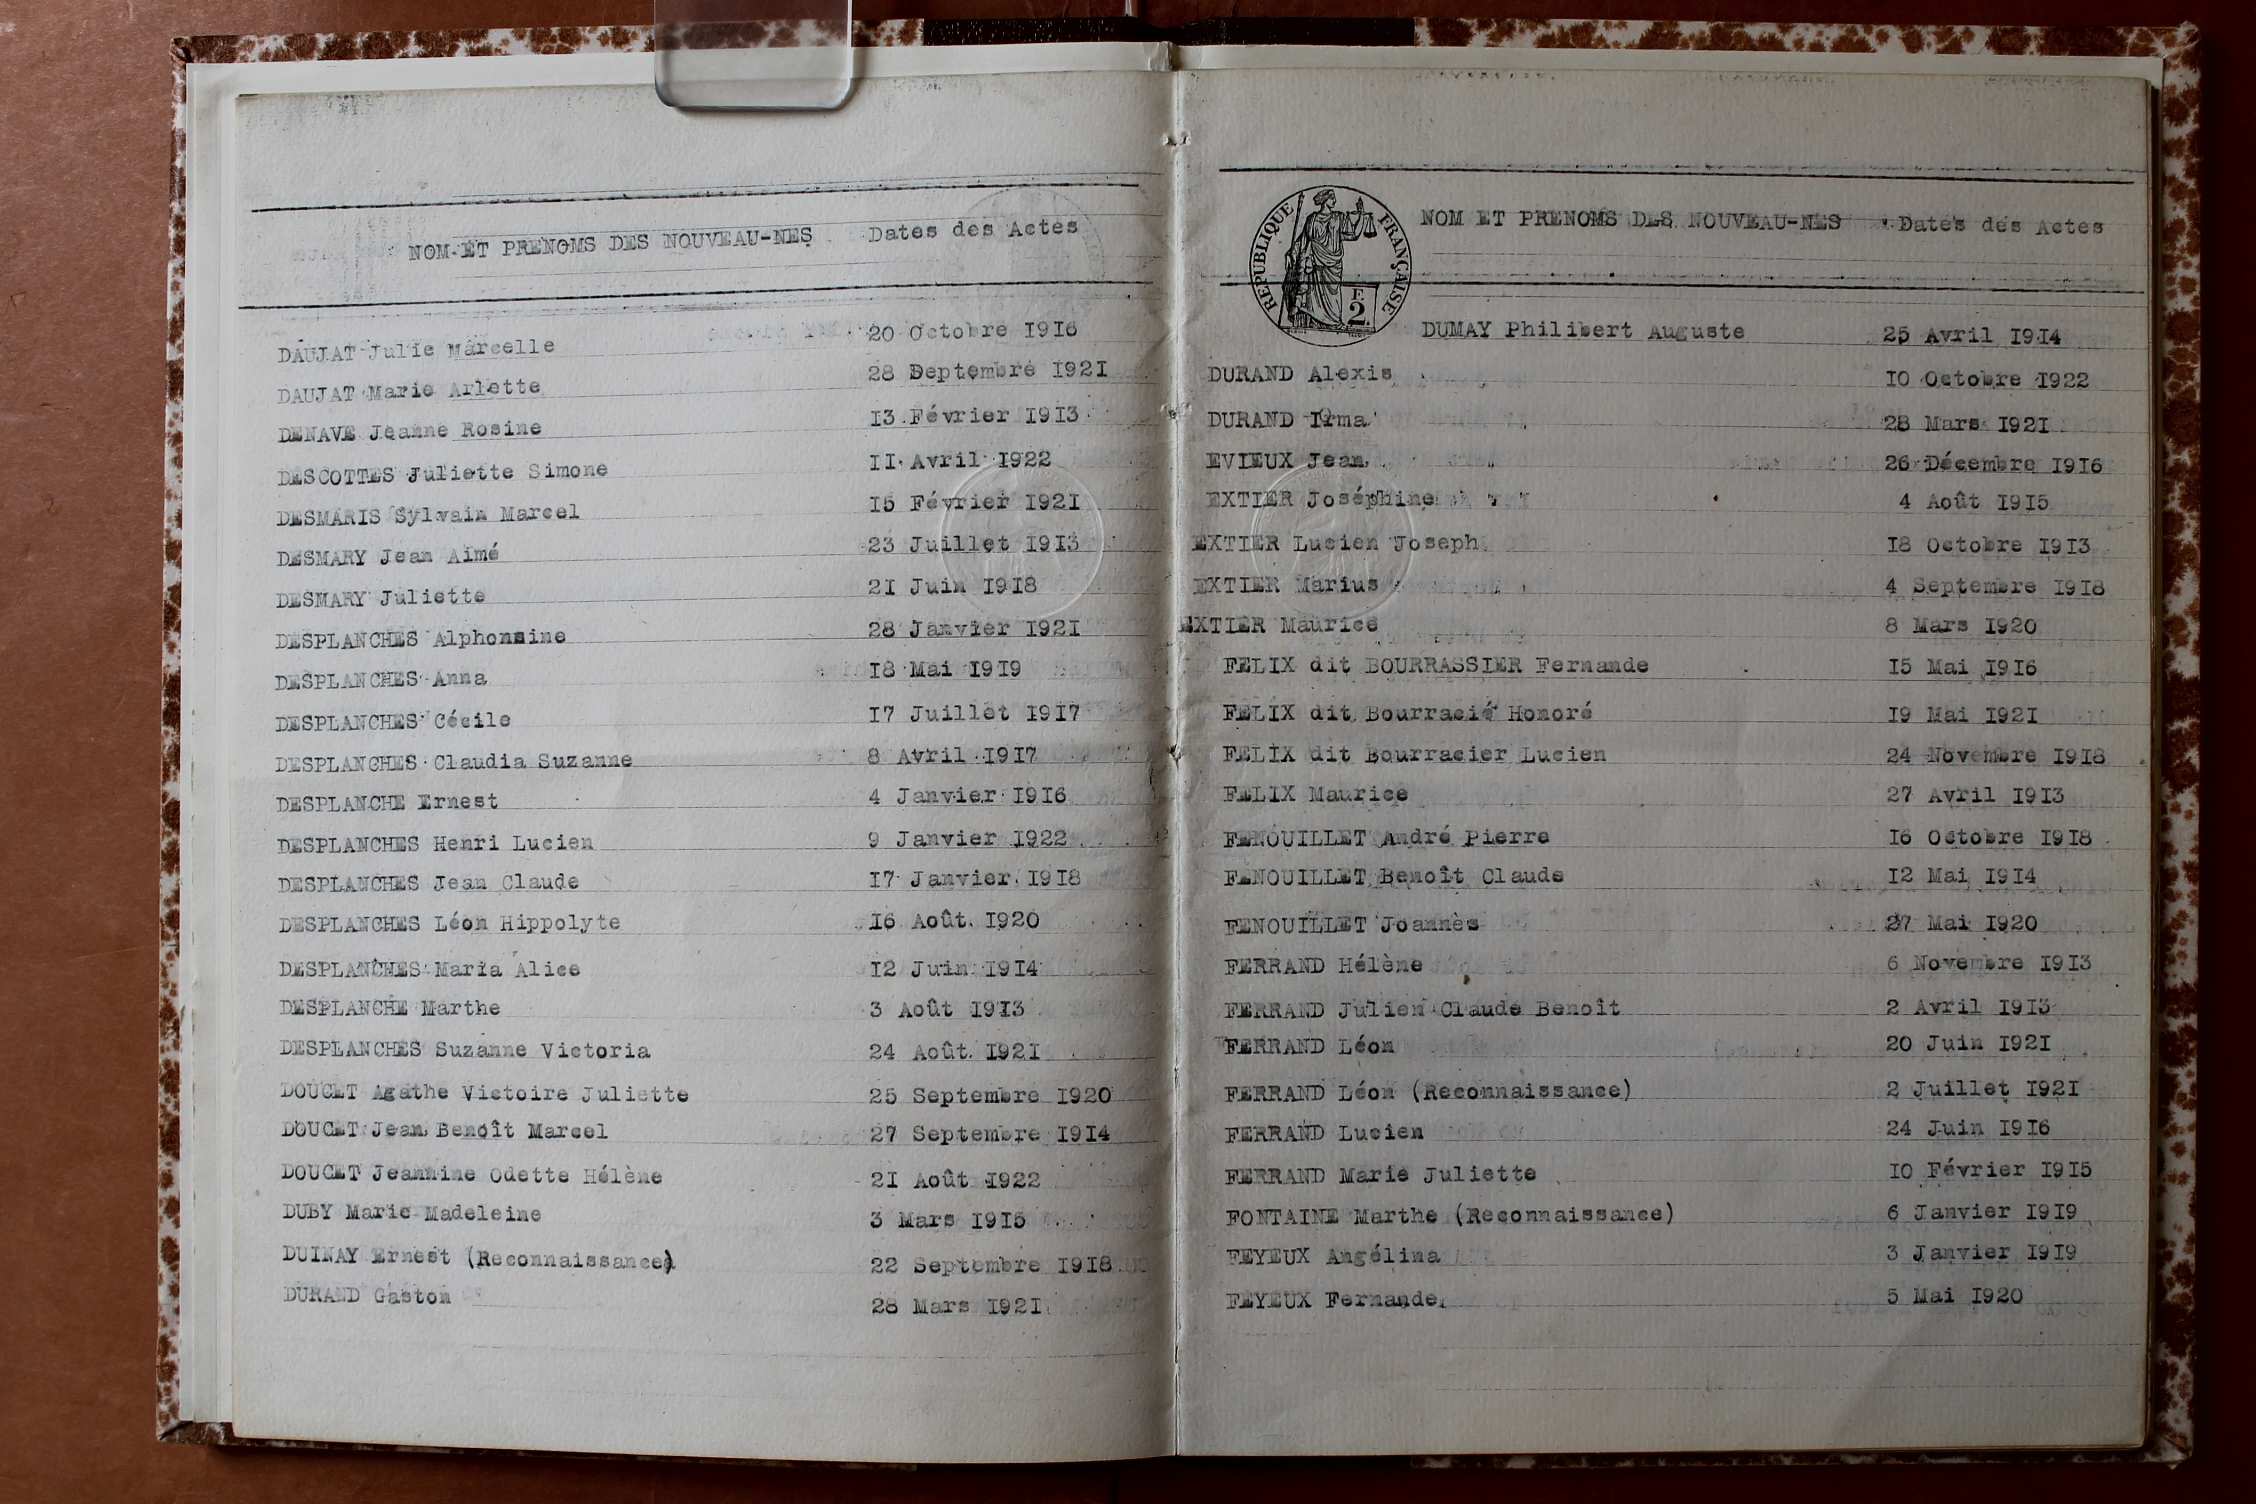 NOM ET PRENOMS DES NOUVEAU-NES Dates des Actes
DAUJAT Julie Marcelle 20 Octobre 1916
DAUJAT Marie Arlette 28 Septembre 1921
DENAVE Jeanne Rosine 13 Février 1913
DESCOTTES Juliette Simone 11 Avril 1922
DESMARIS Sylvain Marcel 15 Février 1921
DESMARY Jean Aimé 23 Juillet 1913
DESMARY Juliette 21 Juin 1918
DESPLANCHES Alphonsine 28 Janvier 1921
DESPLANCHES Anna 18 Mai 1919
DESPLANCHES Cécile 17 Juillet 1917
DESPLANCHES Claudia Suzanne 8 Avril 1917
DESPLANCHE Ernest 4 Janvier 1916
DESPLANCHES Henri Lucien 9 Janvier 1922
DESPLANCHES Jean Claude 17 Janvier 1918
DESPLANCHES Léon Hippolyte 16 Août 1920
DESPLANCHES Maria Alice 12 Juin 1914
DESPLANCHE Marthe 3 Août 1913
DESPLANCHES Suzanne Victoria 24 Août 1921
DOUCET Agathe Victoire Juliette 25 Septembre 1920
DOUCET Jean Benoît Marcel 27 Septembre 1914
DOUCET Jeannine Odette Hélène 21 Août 1922
DUBY Marie Madeleine 3 Mars 1915
DUINAY Ernest (Reconnaissance) 22 Septembre 1918
DURAND Gaston 28 Mars 1921
REPUBLIQUE FRANÇAISE
F. 2
NOM ET PRENOMS DES NOUVEAU-NES Dates des Actes
DUMAY Philibert Auguste 25 Avril 1914
DURAND Alexis 10 Octobre 1922
DURAND Irma 28 Mars 1921
EVIEUX Jean 26 Décembre 1916
EXTIER Joséphine 4 Août 1915
EXTIER Lucien Joseph 18 Octobre 1913
EXTIER Marius 4 Septembre 1918
EXTIER Maurice 8 Mars 1920
FELIX dit BOURRASSIER Fernande 15 Mai 1916
FELIX dit Bourracié Honoré 19 Mai 1921
FELIX dit Bourracier Lucien 24 Novembre 1918
FELIX Maurice 27 Avril 1913
FENOUILLET André Pierre 16 Octobre 1918
FENOUILLET Benoît Claude 12 Mai 1914
FENOUILLET Joannès 27 Mai 1920
FERRAND Hélène 6 Novembre 1913
FERRAND Julien Claude Benoît 2 Avril 1913
FERRAND Léon 20 Juin 1921
FERRAND Léon (Reconnaissance) 2 Juillet 1921
FERRAND Lucien 24 Juin 1916
FERRAND Marie Juliette 10 Février 1915
FONTAINE Marthe (Reconnaissance) 6 Janvier 1919
FEYEUX Angélina 3 Janvier 1919
FEYEUX Fernande 5 Mai 1920